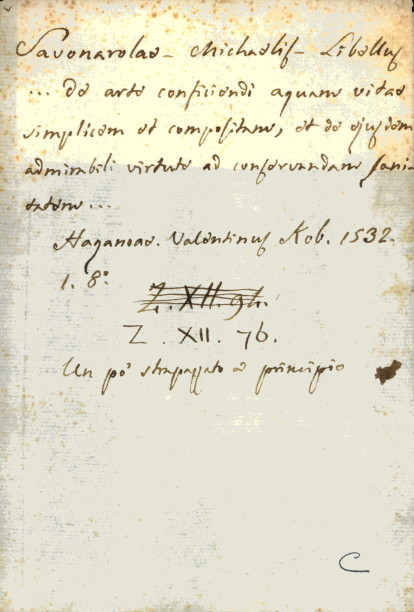 Savonarolae - Michaelis - Libellus
... De arte conficiendi aquam vitae
simplicem et compositam, et de ejusdem
admirabili virtute ad conservandam sani-
tatem...
Haganoae. Valentinus Kob. 1532.
1. 8°
Z. XII. 94.
Z. XII. 76.
Un po' strapazzato a principio
C